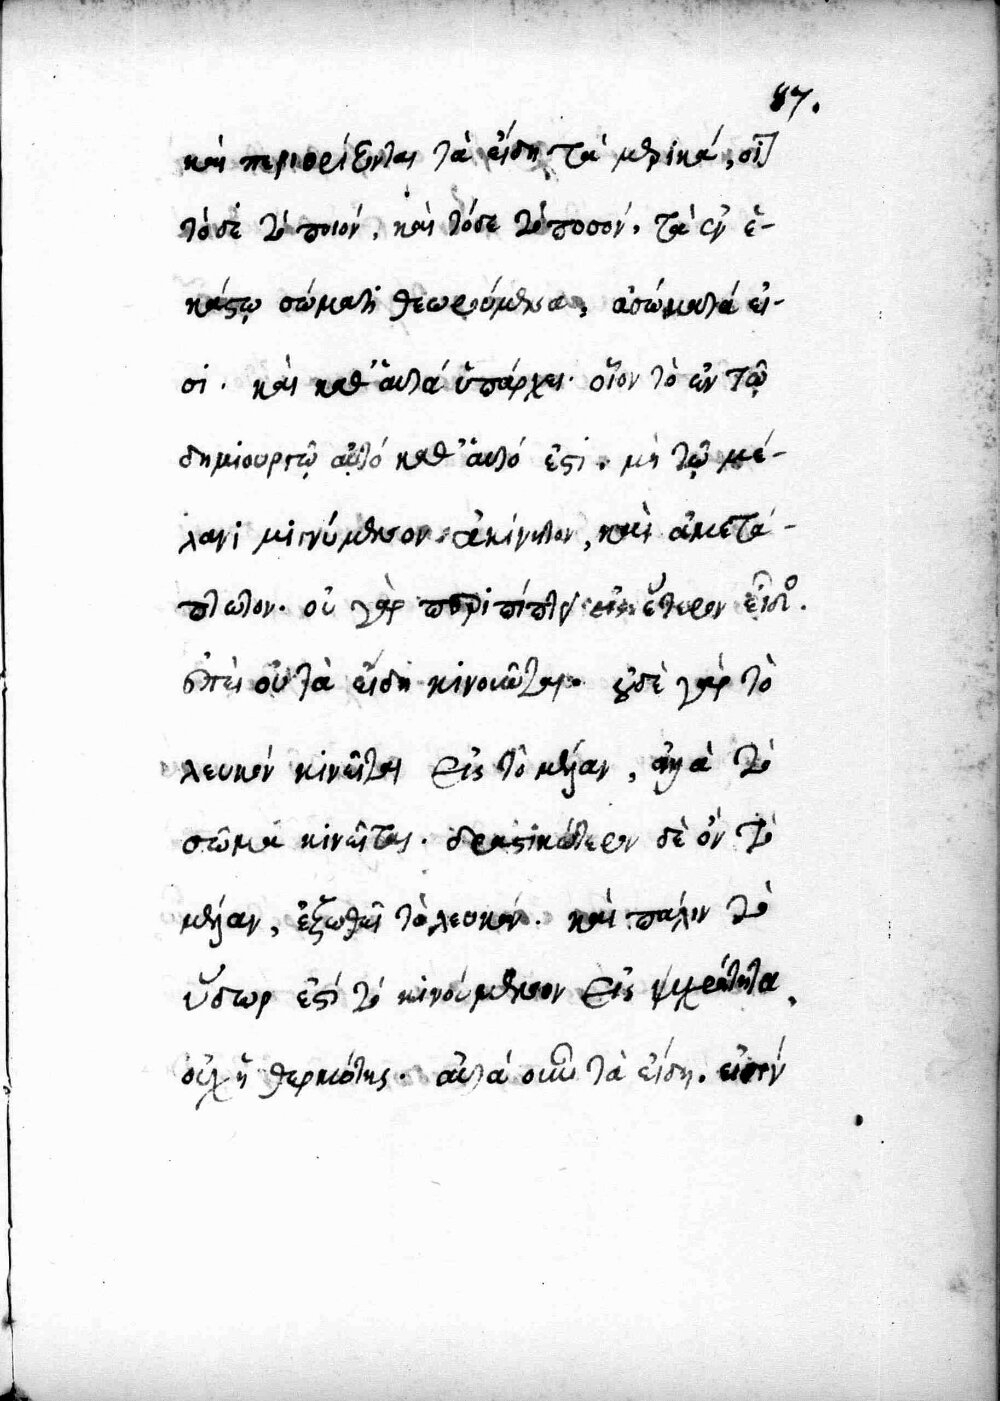 87.
καὶ περιορίζονται τὰ εἴδη τὰ μερικά,
τόδε τὸ ποιόν, καὶ τόδε τὸ ποσόν. τὰ ἐν ἑ-
κάστῳ σώματι θεωρούμενα, ἀσώματά εἰ-
σι. καὶ καθ' αὑτά ὑπάρχει. οἷον τὸ ἐν τῷ
δημιουργῷ αὐτό καθ' αὑτό ἐστι. μὴ τῷ μέ-
λανι μιγνύμενον. ἀκίνητον, καὶ ἀμετά-
πτωτον. οὐ γὰρ περιπίπτει εἰς ἕτερον εἶδος.
ἐπεὶ οὐ τὰ εἴδη κινοῦνται. οὐδὲ γὰρ τὸ
λευκόν κινεῖται εἰς τὸ μέλαν, ἀλλὰ τὸ
σῶμα κινεῖται. δραστικώτερον δὲ ὂν τὸ
μέλαν, ἐξωθεῖ τὸ λευκόν. καὶ πάλιν τὸ
ὕδωρ ἐστί τὸ κινούμενον εἰς ψυχρότητα,
οὐχ ἡ θερμότης. αὐτά οὖν τὰ εἴδη.